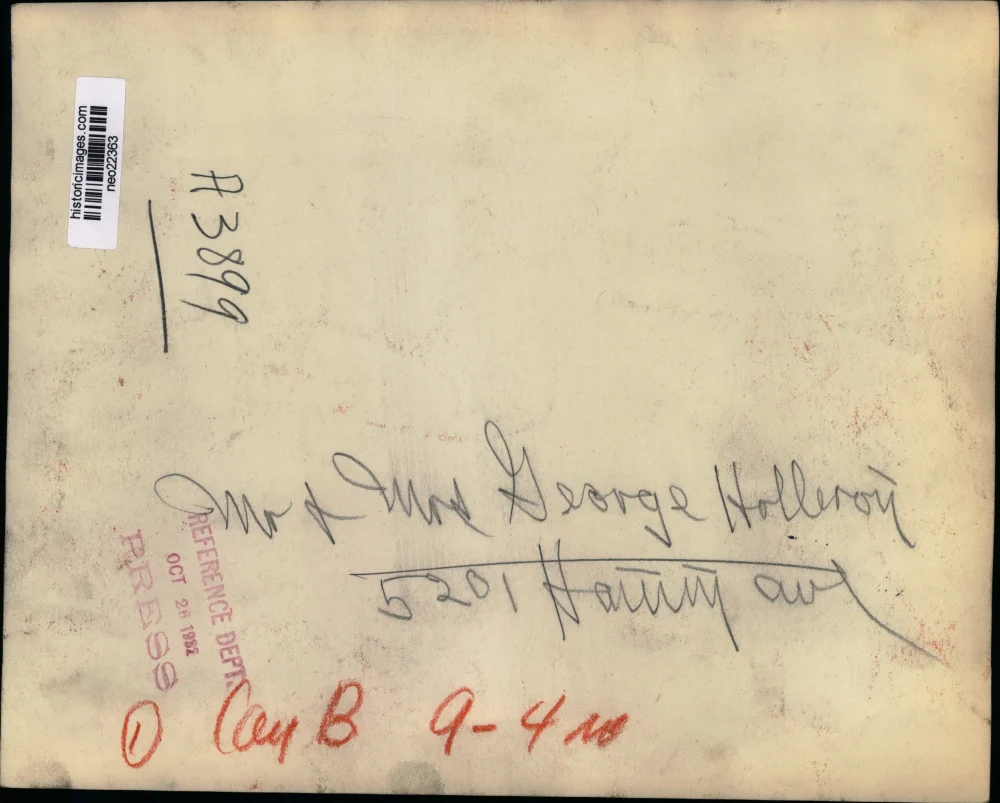 historicimages.com
neo22363
A3899
Mr & Mrs George Holleron
5201 ave
REFERENCE DEPT.
OCT 26 1952
PRESS
1 B 9-4